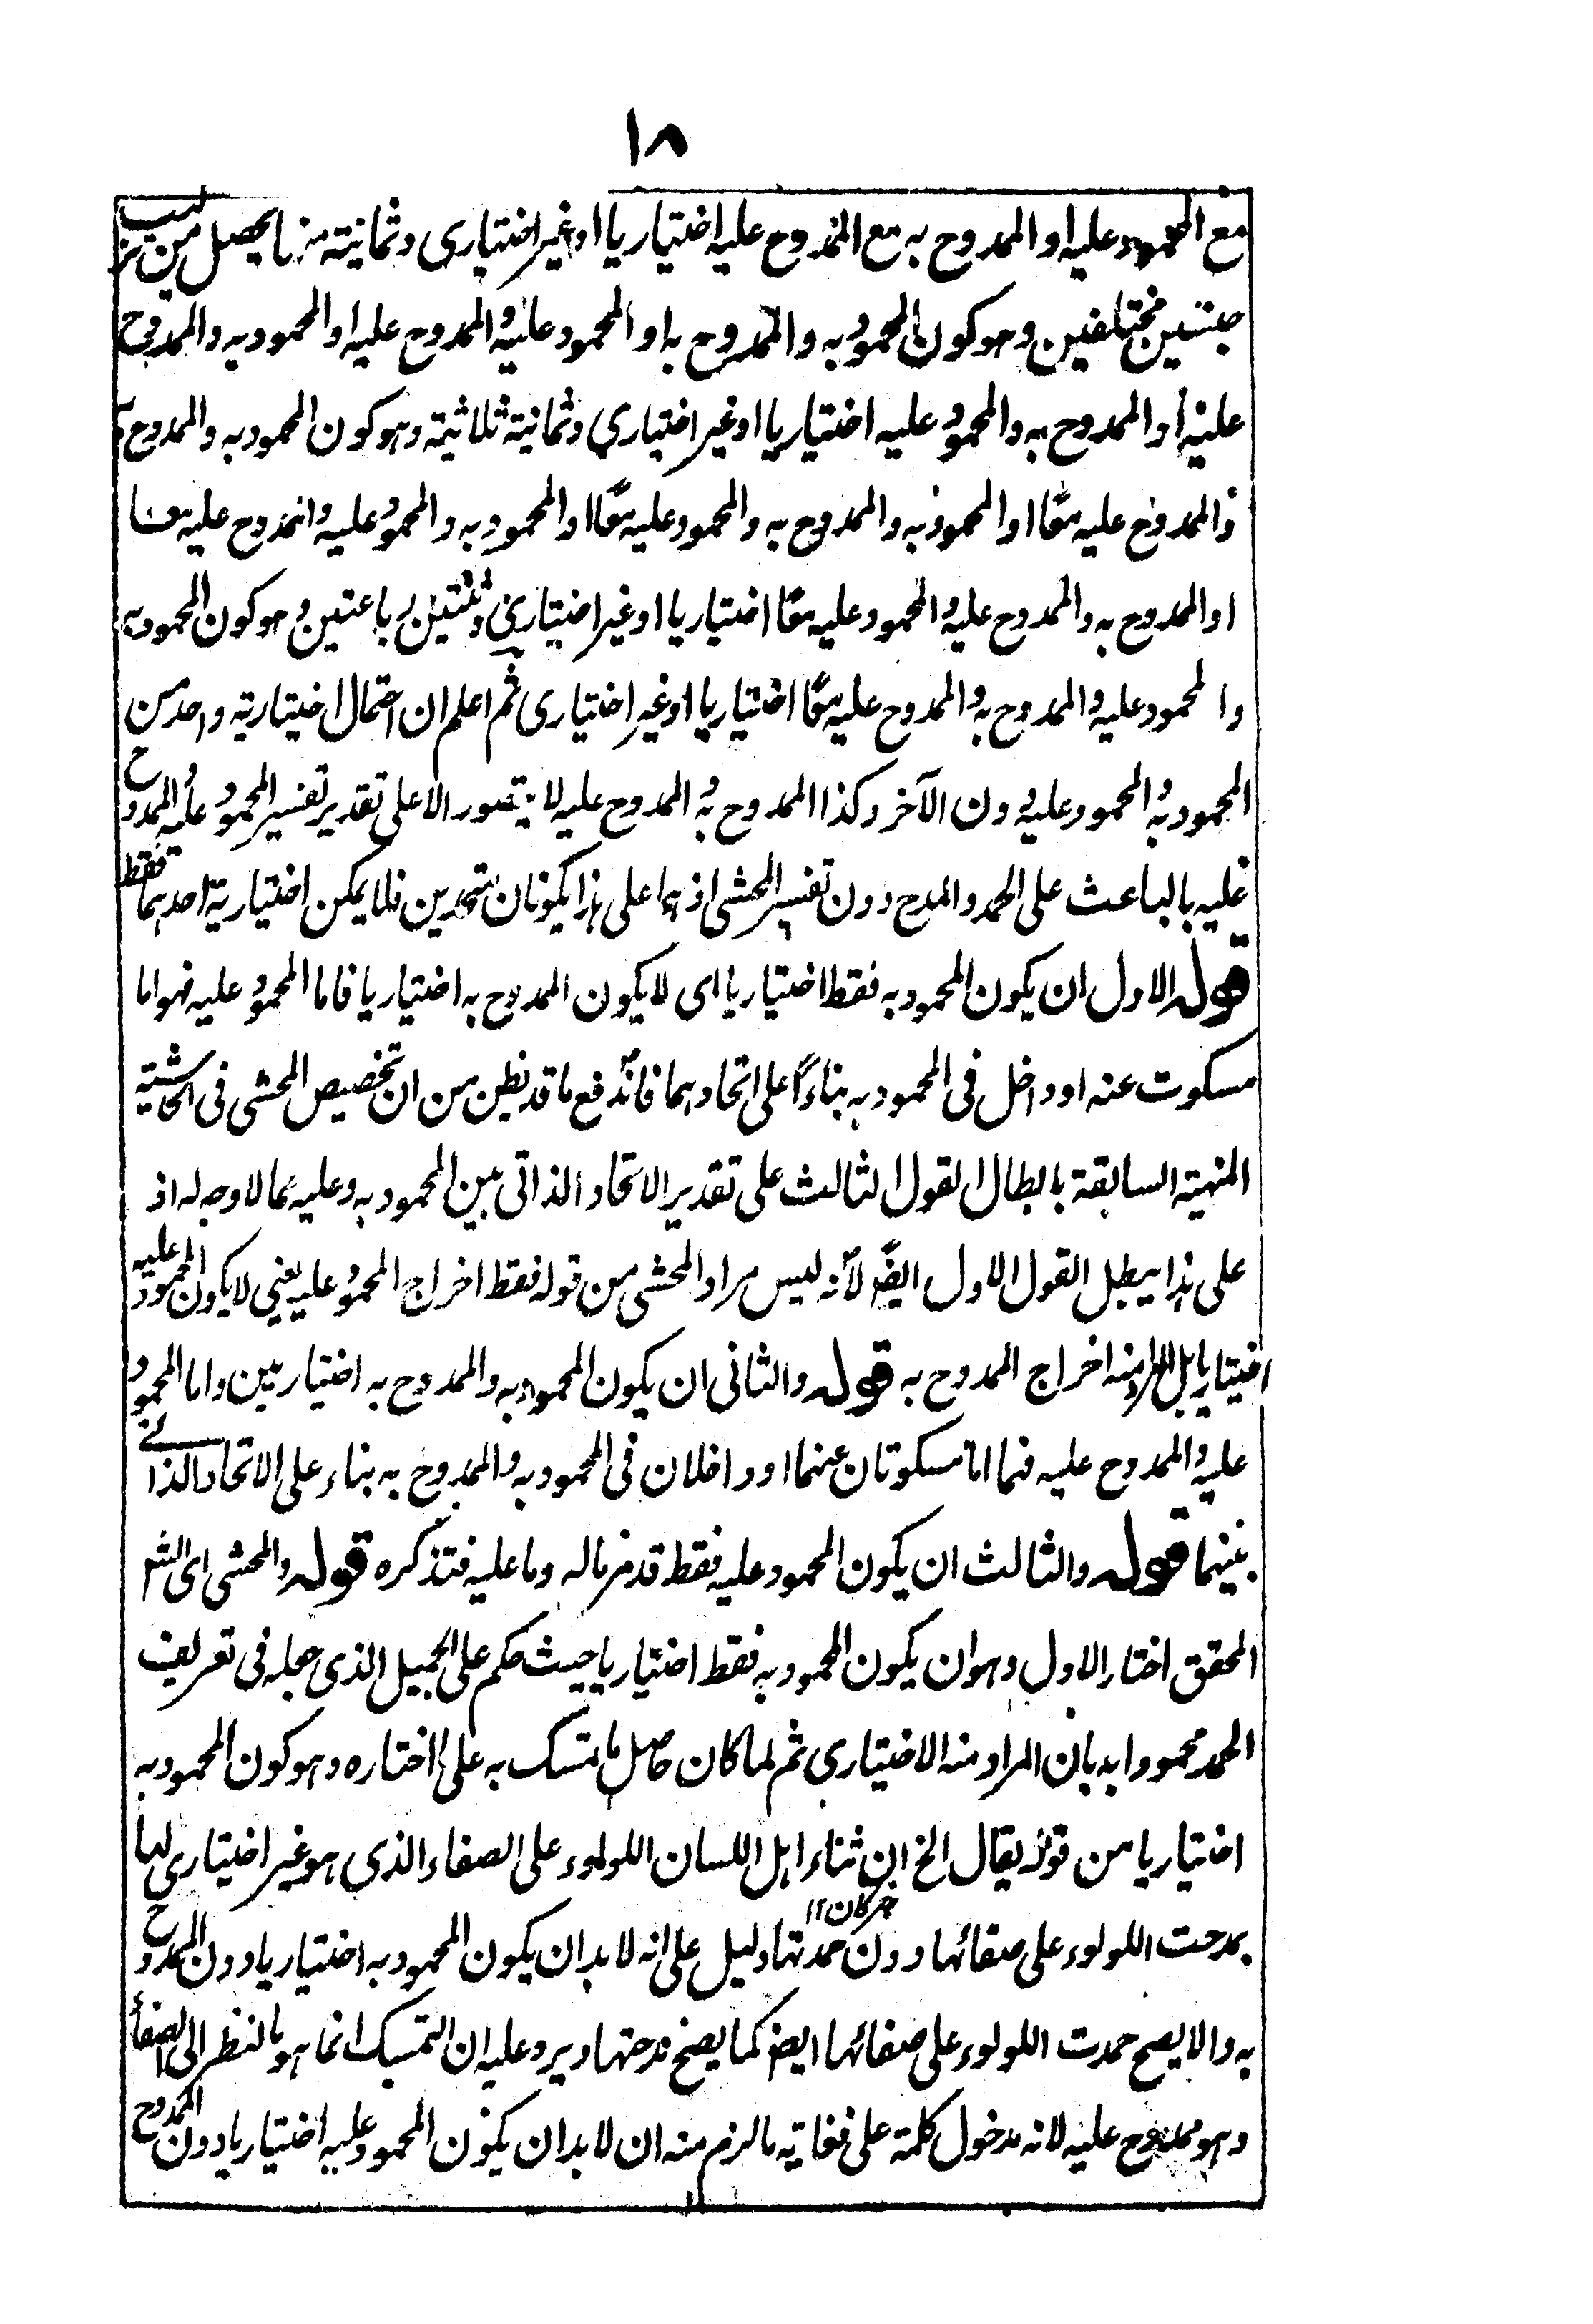 ١٨
مع المحمود عليه او الممدوح به مع الممدوح عليه اختياريا او غير اختياري وثمانية منها يحصل من تركيب
جنسين مختلفين وهو كون المحمود به والممدوح به او المحمود عليه والممدوح عليه او المحمود به والممدوح
عليه او الممدوح به والمحمود عليه اختياريا او غير اختياري وثمانية ثلاثية وهو كون المحمود به والممدوح به
والممدوح عليه معًا او المحمود به والممدوح به والمحمود عليه معًا او المحمود به والمحمود عليه والممدوح عليه معا
او الممدوح به والممدوح عليه والمحمود عليه معًا اختياريا او غير اختياري وثنتين رباعتين وهو كون المحمود به
والمحمود عليه والممدوح به والممدوح عليه معًا اختياريا او غير اختياري ثم اعلم ان احتمال اختيارية واحد من
المحمود به والمحمود عليه دون الآخر وكذا الممدوح به والممدوح عليه لا يتصور الا على تقدير تفسير المحمود عليه والممدوح
عليه بالباعث على الحمد والمدح دون تفسير المحشى اذ هما على هذا يكونان متحدين فلا يمكن اختيارية احدهما فقط
قوله الاول ان يكون المحمود به فقط اختياريا اى لا يكون الممدوح به اختياريا فاما المحمود عليه فهو اما
مسكوت عنه او داخل فى المحمود به بناءً على اتحادهما فاندفع ما قد يظن من ان تخصيص المحشى فى الحاشية
المنهية السابقة بابطال القول الثالث على تقدير الاتحاد الذاتى بين المحمود به وعليه مما لا وجه له اذ
على هذا يبطل القول الاول ايضًا لانه ليس مراد المحشى من قوله فقط اخراج المحمود عليه يعنى لا يكون المحمود عليه
اختياريا بل المراد منه اخراج الممدوح به قوله والثانى ان يكون المحمود به والممدوح به اختياريين واما المحمود
عليه والممدوح عليه فهما اما مسكوتان عنهما او داخلان فى المحمود به والممدوح به بناء على الاتحاد الذاتى
بينهما قوله والثالث ان يكون المحمود عليه فقط قد مر ما له وما عليه فتذكره قوله والمحشى اى الشر
المحقق اختار الاول وهو ان يكون المحمود به فقط اختياريا حيث حكم على الجميل الذى جعله فى تعريف
الحمد محمودا به بان المراد منه الاختيارى ثم لما كان حاصل ما تمسك به على ما اختاره وهو كون المحمود به
اختياريا من قوله يقال الخ ان ثناء اهل اللسان اللولوء على الصفاء الذى هو غير اختيارى لها
بمدحت اللولوء على صفائها دون حمدتها دليل على انه لا بد ان يكون المحمود به اختياريا دون الممدوح
خبر كان ١٢
به والا يصح حمدت اللولوء على صفائها ايضا كما يصح مدحتها ويرد عليه ان التمسك انما هو بالنظر الى الصفاء
وهو ممدوح عليه لانه مدخول كلمة على فغاية ما لزم منه ان لا بد ان يكون المحمود عليه اختياريا دون الممدوح